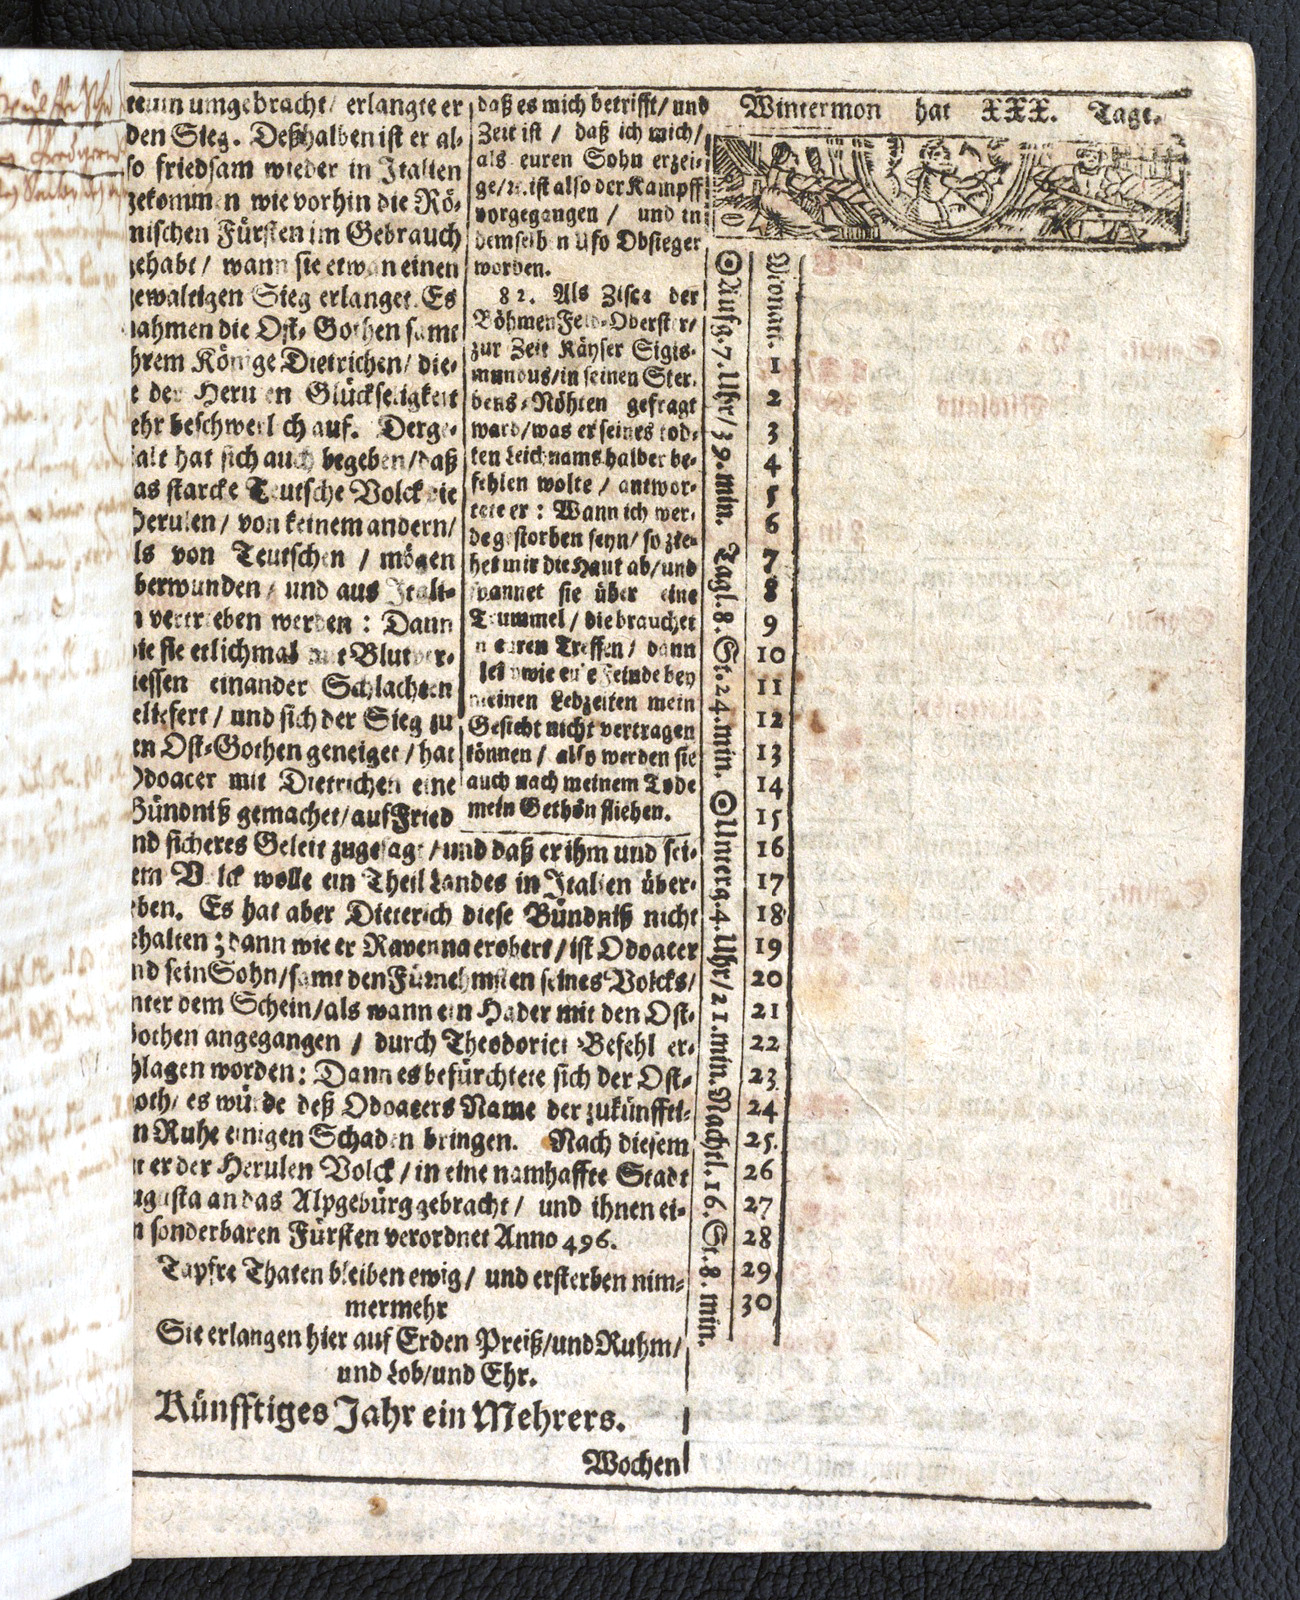 umgebracht / erlangte er
den Sieg. Deßhalben ist er al-
so friedsam wieder in Italien
gekommen wie vorhin die Rö-
mischen Fürsten im Gebrauch
gehabt / wann sie etwan einen
gewaltigen Sieg erlanget. Es
nahmen die Ost-Gothen samt
ihrem Könige Dietrichen / die-
der Herulen Glückseligkeit
sehr beschwerlich auf. Derge-
stalt hat sich auch begeben / daß
das starcke Teutsche Volck die
Herulen / von keinem andern /
als von Teutschen / mögen
überwunden / und aus Itali-
en vertrieben werden : Dann
wie sie etlichmal mit Blutver-
giessen einander Schlachten
geliefert / und sich der Sieg zu
den Ost-Gothen geneiget / hat
Odoacer mit Dietrichen eine
Bündniß gemachet / auf Fried
und sicheres Geleit zugesagt / und daß er ihm und sei-
nem Volck wolle ein Theil Landes in Italien über-
geben. Es hat aber Dieterich diese Bündniß nicht
gehalten ; dann wie er Ravenna erobert / ist Odoacer
und sein Sohn / samt den Fürnehmsten seines Volcks /
unter dem Schein / als wann ein Hader mit den Ost-
Gothen angegangen / durch Theodorici Befehl er-
schlagen worden : Dann es befürchtete sich der Ost-
Goth / es würde deß Odoacers Name der zukünffti-
gen Ruhe einigen Schaden bringen. Nach diesem
hat er der Herulen Volck / in eine namhaffte Stadt
Augusta an das Alpgebürg gebracht / und ihnen ei-
nen sonderbaren Fürsten verordnet Anno 496.
Tapfre Thaten bleiben ewig / und ersterben nim-
mermehr
Sie erlangen hier auf Erden Preiß / und Ruhm /
und Lob / und Ehr.
Künfftiges Jahr ein Mehrers.
Wochen
daß es mich betrifft / und
Zeit ist / daß ich mich /
als euren Sohn erzei-
ge / ist also der Kampff
vorgegangen / und in
demselben Ufo Obsieger
worden.
82. Als Zisca der
Böhmen Feld-Oberster /
zur Zeit Käyser Sigis-
mundus / in seinen Ster-
bens-Nöhten gefragt
ward / was er seines tod-
ten Leichnams halber be-
fehlen wolte / antwor-
tete er : Wann ich wer-
de gestorben seyn / so zie-
het mir die Haut ab / und
spannet sie über eine
Trummel / die brauchet
in euren Treffen / dann
wie eure Feinde bey
meinen Lebzeiten mein
Gesicht nicht vertragen
können / also werden sie
auch nach meinem Tode
mein Gethön fliehen.
Wintermon hat XXX. Tage.
☉ Aufg. 7. Uhr / 39. min. Tagl. 8. St. 24. min. ☉ Unterg. 4. Uhr / 21. min. Nachtl. 16. St. 8. min.
Monat.
1
2
3
4
5
6
7
8
9
10
11
12
13
14
15
16
17
18
19
20
21
22
23
24
25.
26
27
28
29
30